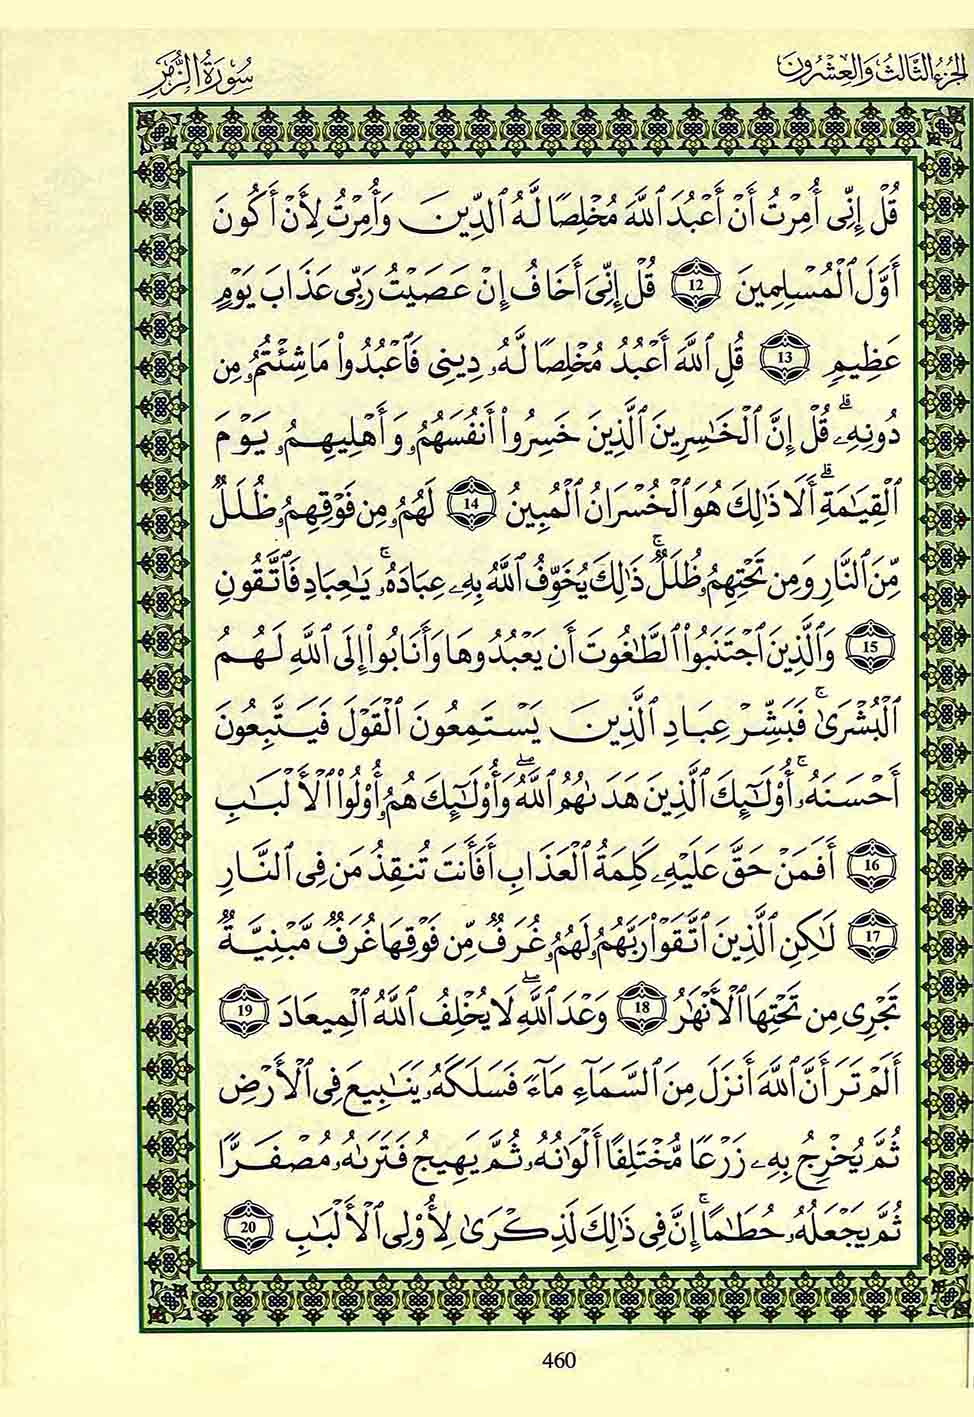 الجزء الثالث والعشرون
سُورَةُ الزُّمَرِ
قُلْ إِنِّي أُمِرْتُ أَنْ أَعْبُدَ ٱللَّهَ مُخْلِصًا لَّهُ ٱلدِّينَ وَأُمِرْتُ لِأَنْ أَكُونَ
أَوَّلَ ٱلْمُسْلِمِينَ 12 قُلْ إِنِّيَ أَخَافُ إِنْ عَصَيْتُ رَبِّي عَذَابَ يَوْمٍ
عَظِيمٍ 13 قُلِ ٱللَّهَ أَعْبُدُ مُخْلِصًا لَّهُۥ دِينِي فَٱعْبُدُوا۟ مَا شِئْتُمُۥ مِن
دُونِهِۦۗ قُلْ إِنَّ ٱلْخَٰسِرِينَ ٱلَّذِينَ خَسِرُوٓا۟ أَنفُسَهُمُۥ وَأَهْلِيهِمُۥ يَوْمَ
ٱلْقِيَٰمَةِۗ أَلَا ذَٰلِكَ هُوَ ٱلْخُسْرَانُ ٱلْمُبِينُ 14 لَهُمُۥ مِن فَوْقِهِمُۥ ظُلَلٌ
مِّنَ ٱلنَّارِ وَمِن تَحْتِهِمُۥ ظُلَلٌۚ ذَٰلِكَ يُخَوِّفُ ٱللَّهُ بِهِۦ عِبَادَهُۥۚ يَٰعِبَادِ فَٱتَّقُونِ
15 وَٱلَّذِينَ ٱجْتَنَبُوا۟ ٱلطَّٰغُوتَ أَن يَعْبُدُوهَا وَأَنَابُوٓا۟ إِلَى ٱللَّهِ لَهُمُ
ٱلْبُشْرَىٰۚ فَبَشِّرْ عِبَادِ ٱلَّذِينَ يَسْتَمِعُونَ ٱلْقَوْلَ فَيَتَّبِعُونَ
أَحْسَنَهُۥۚ أُو۟لَٰٓئِكَ ٱلَّذِينَ هَدَىٰهُمُ ٱللَّهُۖ وَأُو۟لَٰٓئِكَ هُمُۥ أُو۟لُوا۟ ٱلْأَلْبَٰبِ
16 أَفَمَنْ حَقَّ عَلَيْهِۦ كَلِمَةُ ٱلْعَذَابِ أَفَأَنتَ تُنقِذُ مَن فِي ٱلنَّارِ
17 لَٰكِنِ ٱلَّذِينَ ٱتَّقَوْا۟ رَبَّهُمُۥ لَهُمُۥ غُرَفٌ مِّن فَوْقِهَا غُرَفٌ مَّبْنِيَّةٌ
تَجْرِي مِن تَحْتِهَا ٱلْأَنْهَٰرُ 18 وَعْدَ ٱللَّهِۖ لَا يُخْلِفُ ٱللَّهُ ٱلْمِيعَادَ 19
أَلَمْ تَرَ أَنَّ ٱللَّهَ أَنزَلَ مِنَ ٱلسَّمَآءِ مَآءً فَسَلَكَهُۥ يَنَٰبِيعَ فِي ٱلْأَرْضِ
ثُمَّ يُخْرِجُ بِهِۦ زَرْعًا مُّخْتَلِفًا أَلْوَٰنُهُۥ ثُمَّ يَهِيجُ فَتَرَىٰهُۥ مُصْفَرًّا
ثُمَّ يَجْعَلُهُۥ حُطَٰمًاۚ إِنَّ فِي ذَٰلِكَ لَذِكْرَىٰ لِأُو۟لِي ٱلْأَلْبَٰبِ 20
460